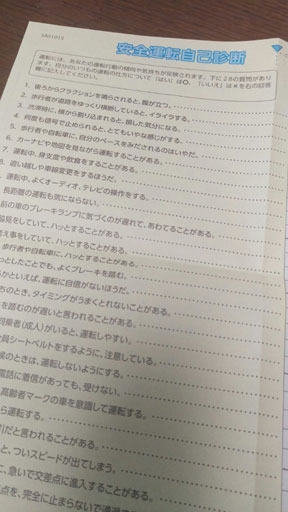 安全運転自己診断
運転には、あなたの運転行動の傾向や気持ちが反映されます。下に28の質問があり
ます。自分のいつもの運転の仕方について「はい」は○、「いいえ」は×を右の回答
欄に記入してください。
1. 後ろからクラクションを鳴らされると、腹が立つ。
2. 歩行者が道路をゆっくり横断していると、イライラする。
3. 渋滞時に、横から割り込まれると、損した気分になる。
4. 何度も信号で止められると、とてもいやな感じがする。
5. 歩行者や自転車に、自分のペースをみだされるのはいやだ。
6. カーナビや地図を見ながら運転することがある。
7. 運転中、身支度や飲食をすることがある。
8. 追い越しや車線変更をするほうだ。
運転中、よくオーディオ、テレビの操作をする。
長距離の運転も気にならない。
前の車のブレーキランプに気づくのが遅れて、あわてることがある。
脇見をしていて、ハッとすることがある。
考え事をしていて、ハッとすることがある。
歩行者や自転車に、ハッとすることがある。
っとしたことでも、よくブレーキを踏む。
らかといえば、運転に自信がないほうだ。
ちのとき、タイミングがうまくとれないことがある。
を踏むのが遅いと言われることがある。
同乗者(成人)がいると、運転しやすい。
員シートベルトをするように、注意している。
のときは、運転しないようにする。
電話に着信があっても、受けない。
高齢者マークの車を意識して運転する。
ら運転する。
だと言われることがある。
と、ついスピードが出てしまう。
に、急いで交差点に進入することがある。
点を、完全に止まらないで通過